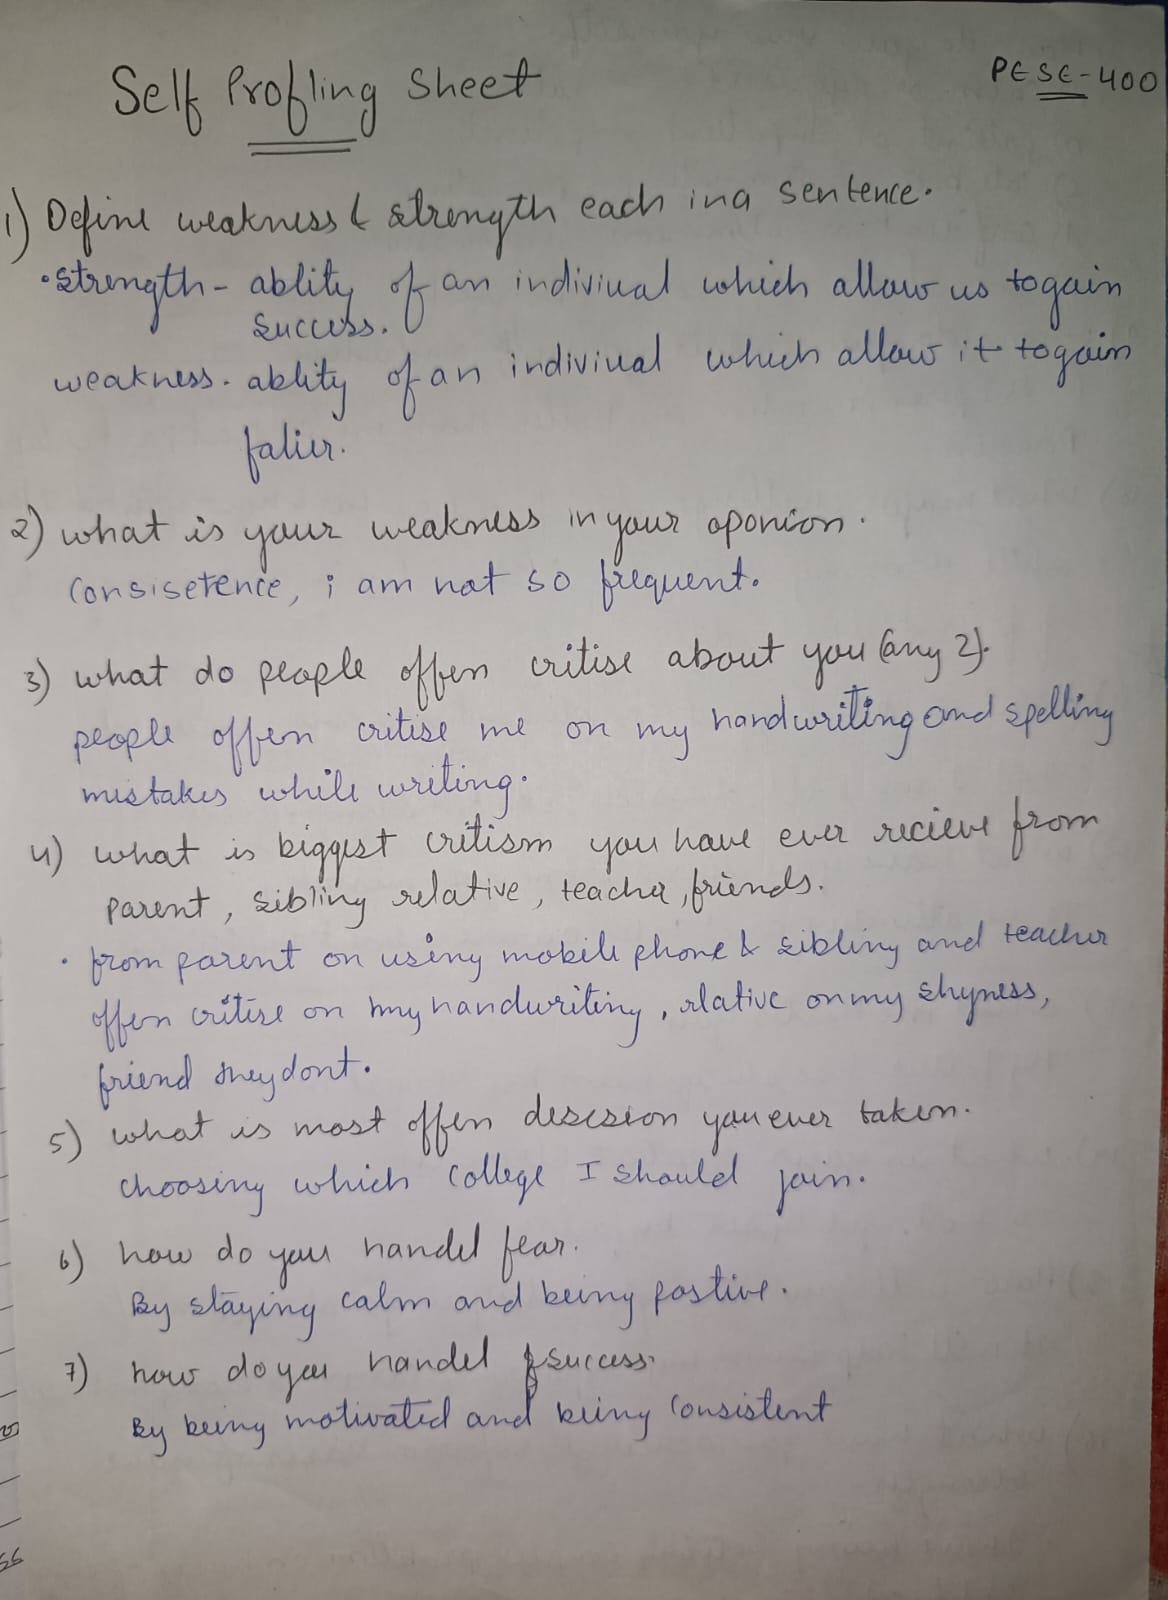 Self Profling Sheet
PESE-400
1) Define weakness & strength each in a sentence.
• strength - ablity of an indiviual which allow us to gain
success.
weakness - ablity of an indiviual which allow it to gain
falier.
2) what is your weakness in your oponion.
Consisetence, i am not so frequent.
3) what do people offen critise about you (any 2).
people offen critise me on my handwriting and spelling
mistakes while writing.
4) what is biggest critism you have ever recieve from
parent, sibling relative, teacher, friends.
• from parent on using mobile phone & sibling and teacher
offen critise on my handwriting, relative on my shyness,
friend they dont.
5) what is most offen descsion you ever taken.
choosing which college I should join.
6) how do you handel fear.
By staying calm and being postive.
7) how do you handel success.
By being motivated and being consistent